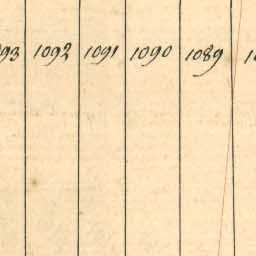 1092 1091 1090 1089